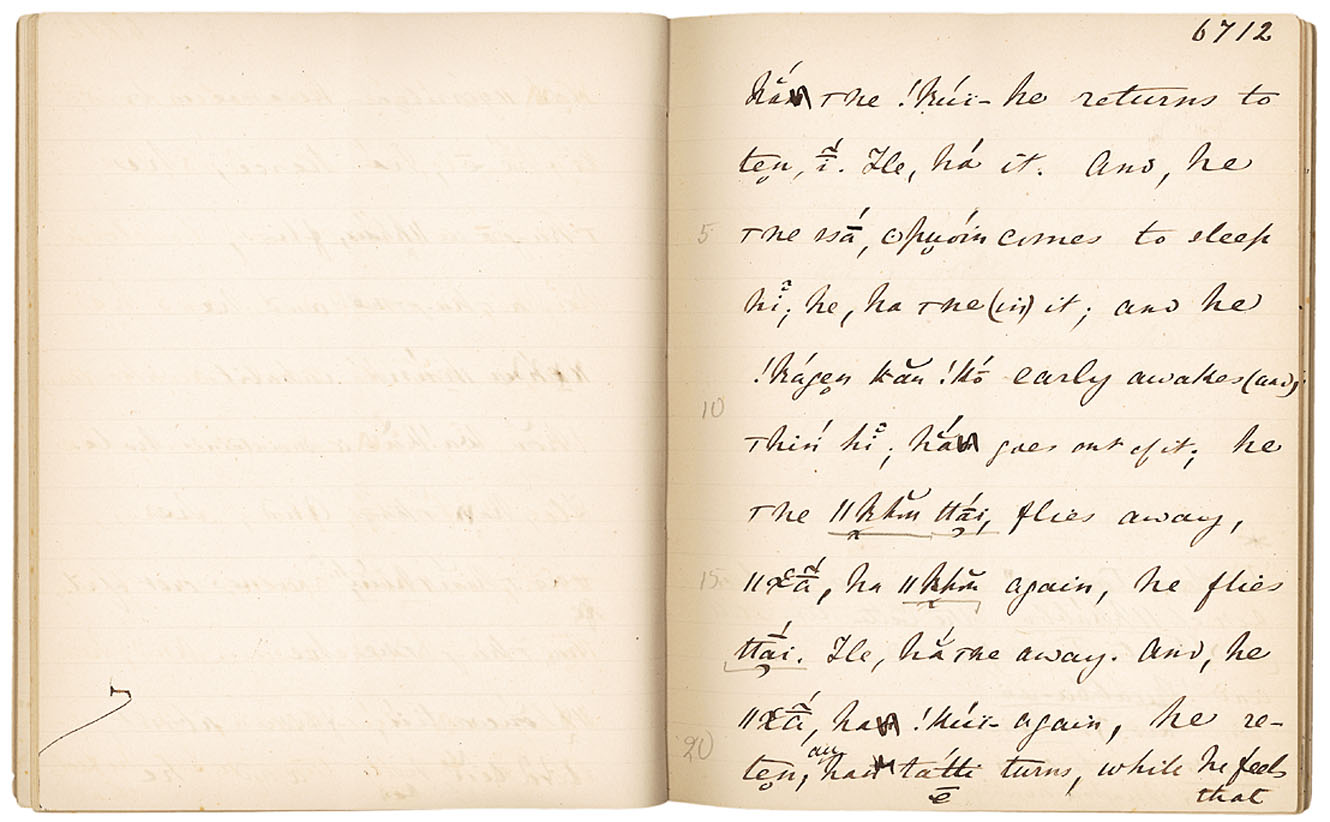 6712
hắŋ ꞇne !kúï- he returns to
tẹn, ī́. Ile, há it. And, he
5 ꞇne ssā́, ʘpụóin comes to sleep
hĭ; he, ha ꞇne (in) it; and he
!kágẹn kăn !kó early awakes (and)
10
ꞇhiń hĭ; hắŋ goes out of it; he
ꞇne ǁkhŏu ttái, flies away,
15 ǁχā̆́, ha ǁkhŏu again, he flies
ttái. Ile, hắ ꞇne away. And, he
ǁχā̆́, haŋ !kúï- again, he re-
20
tẹn, au haŋ tátti turns, while he feels
ē that